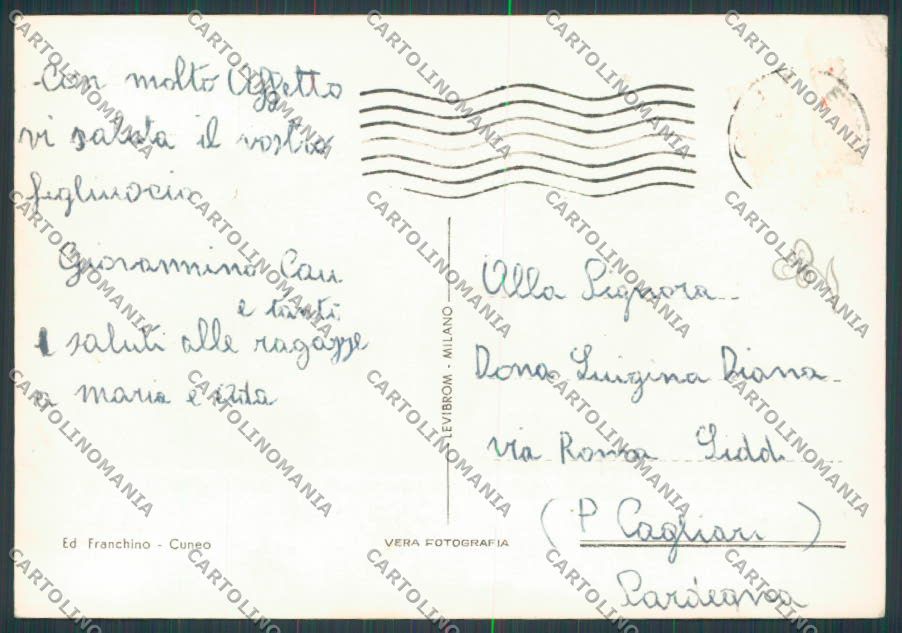 Con molto Affetto
vi saluta il vostro
figliuocio
Giovannino Cau
e tanti
saluti alle ragazze
a Maria e
Alla Signora
Dona Luigina Diana
via Roma Siddi
(P Cagliari)
Sardegna
LEVIBROM - MILANO
Ed Franchino - Cuneo
VERA FOTOGRAFIA
CARTOLINOMANIA